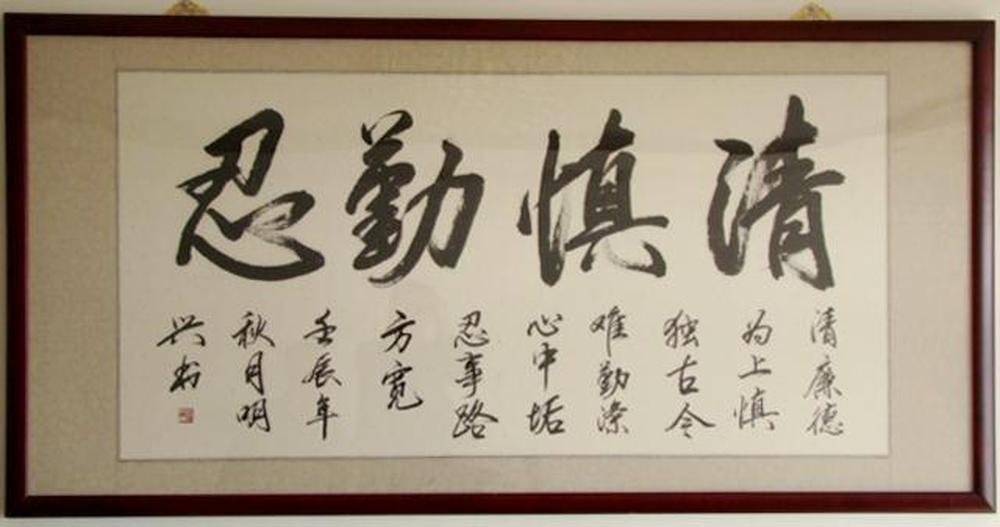 清慎勤忍
清廉德
为上慎
独古今
难勤涤
心中垢
忍事路
方宽
壬辰年
秋月明
兴书